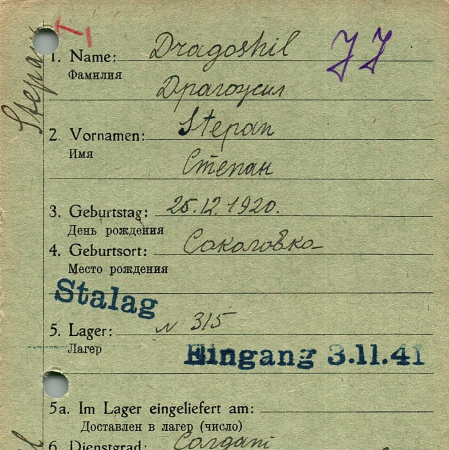 Stepan
1. Name: Dragoshil
Фамилия
Драгожил
2. Vornamen: Stepan
Имя
Степан
3. Geburtstag: 25.12.1920.
День рождения
4. Geburtsort: Сокаловка
Место рождения
Stalag
5. Lager: N 315
Лагер
Eingang 3.11.41
5a. Im Lager eingeliefert am:
Доставлен в лагер (число)
6. Dienstgrad: